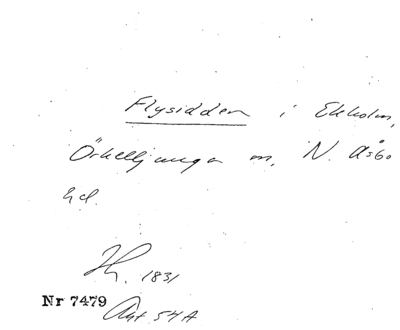 Flysidden i Ekholm,
Örkelljunga sn, N. Åsbo
hd.
Hr. 1831
Nr 7479
Avt 54A